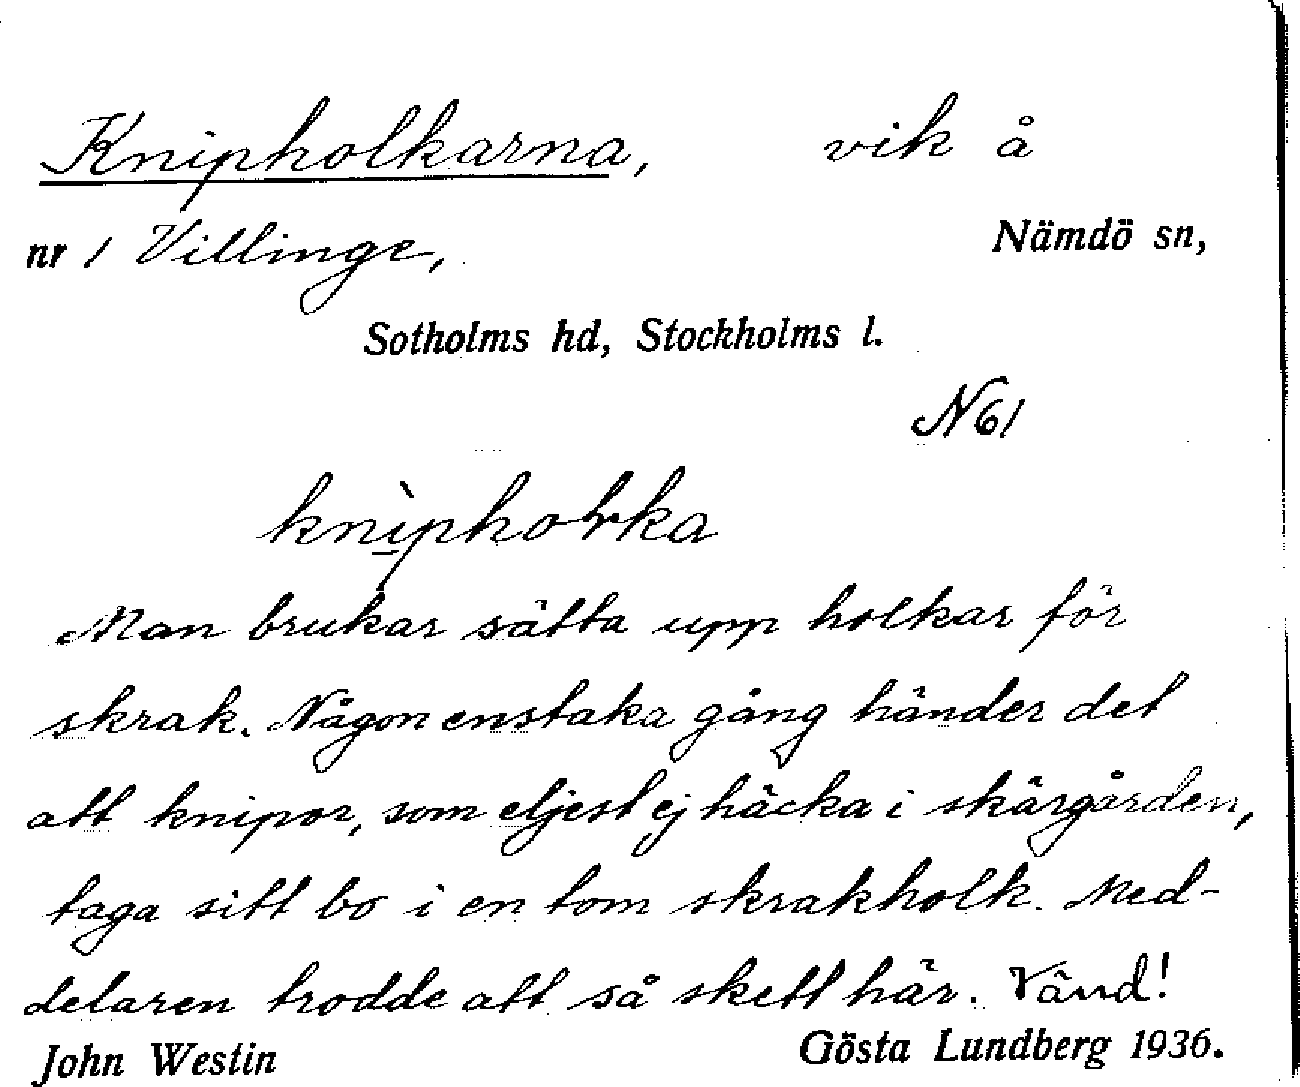 Knipholkarna, vik å
nr 1 Villinge, Nämdö sn,
Sotholms hd, Stockholms l.
N61
knìpholka
Man brukar sätta upp holkar för
skrak. Någon enstaka gång händer det
att knipor, som eljest ej häcka i skärgården,
taga sitt bo i en tom skrakholk. Med-
delaren trodde att så skett här. Vänd!
John Westin Gösta Lundberg 1936.